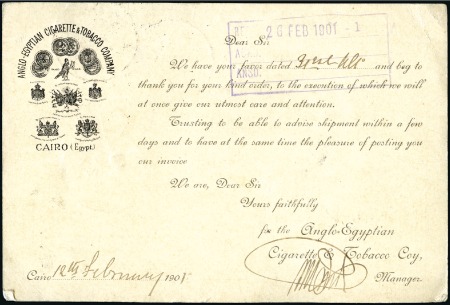 ANGLO-EGYPTIAN CIGARETTE & TOBACCO COMPANY
CAIRO (Egypt)
26 FEB 1901 - 1
Dear Sir
We have your favor dated ult. and beg to
thank you for your kind order, to the execution of which we will
at once give our utmost care and attention.
Trusting to be able to advise shipment within a few
days and to have at the same time the pleasure of posting you
our invoice
We are, Dear Sir
Yours faithfully
for the Anglo-Egyptian
Cigarette & Tobacco Coy,
Manager.
Cairo 12th February 1901